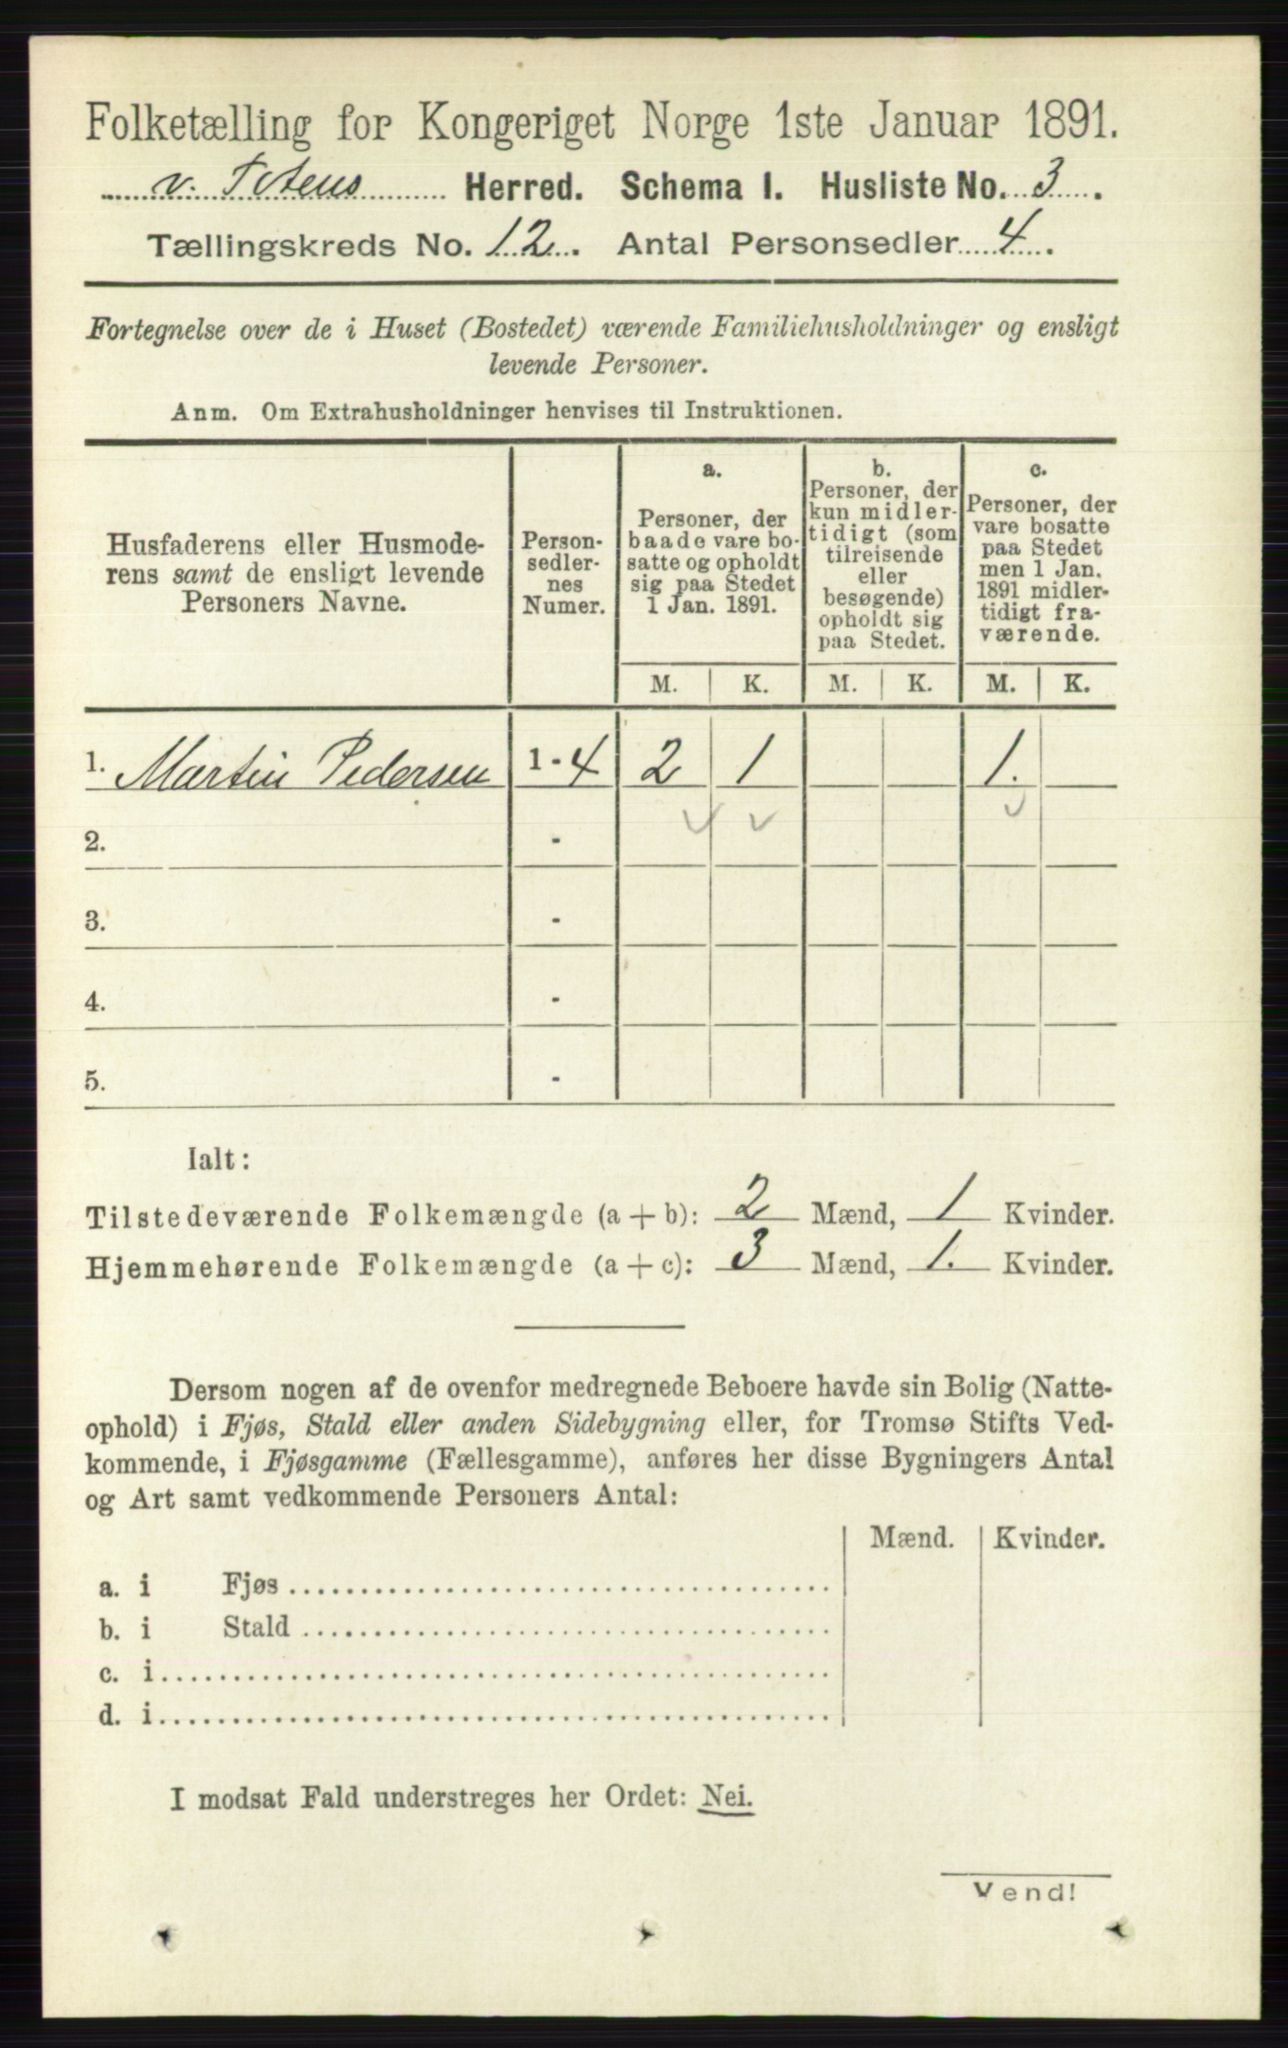 Folketælling for Kongeriget Norge 1ste Januar 1891.
v. Totens Herred. Schema I. Husliste No. 3.
Tællingskreds No. 12. Antal Personsedler 4.
Fortegnelse over de i Huset (Bostedet) værende Familiehusholdninger og ensligt
levende Personer.
Anm. Om Extrahusholdninger henvises til Instruktionen.
Husfaderens eller Husmode-
rens samt de ensligt levende
Personers Navne.
Person-
sedler-
nes
Numer.
a.
Personer, der
baade vare bo-
satte og opholdt
sig paa Stedet
1 Jan. 1891.
b.
Personer, der
kun midler-
tidigt (som
tilreisende
eller
besøgende)
opholdt sig
paa Stedet.
c.
Personer, der
vare bosatte
paa Stedet
men 1 Jan.
1891 midler-
tidigt fra-
værende.
M. K. M. K. M. K.
1. Martin Pedersen 1-4 2 1 1.
2. -
3. -
4. -
5. -
Ialt:
Tilstedeværende Folkemængde (a + b): 2 Mænd, 1 Kvinder.
Hjemmehørende Folkemængde (a + c): 3 Mænd, 1. Kvinder.
Dersom nogen af de ovenfor medregnede Beboere havde sin Bolig (Natte-
ophold) i Fjøs, Stald eller anden Sidebygning eller, for Tromsø Stifts Ved-
kommende, i Fjøsgamme (Fællesgamme), anføres her disse Bygningers Antal
og Art samt vedkommende Personers Antal:
Mænd. Kvinder.
a. i Fjøs
b. i Stald
c. i
d. i
I modsat Fald understreges her Ordet: Nei.
Vend!